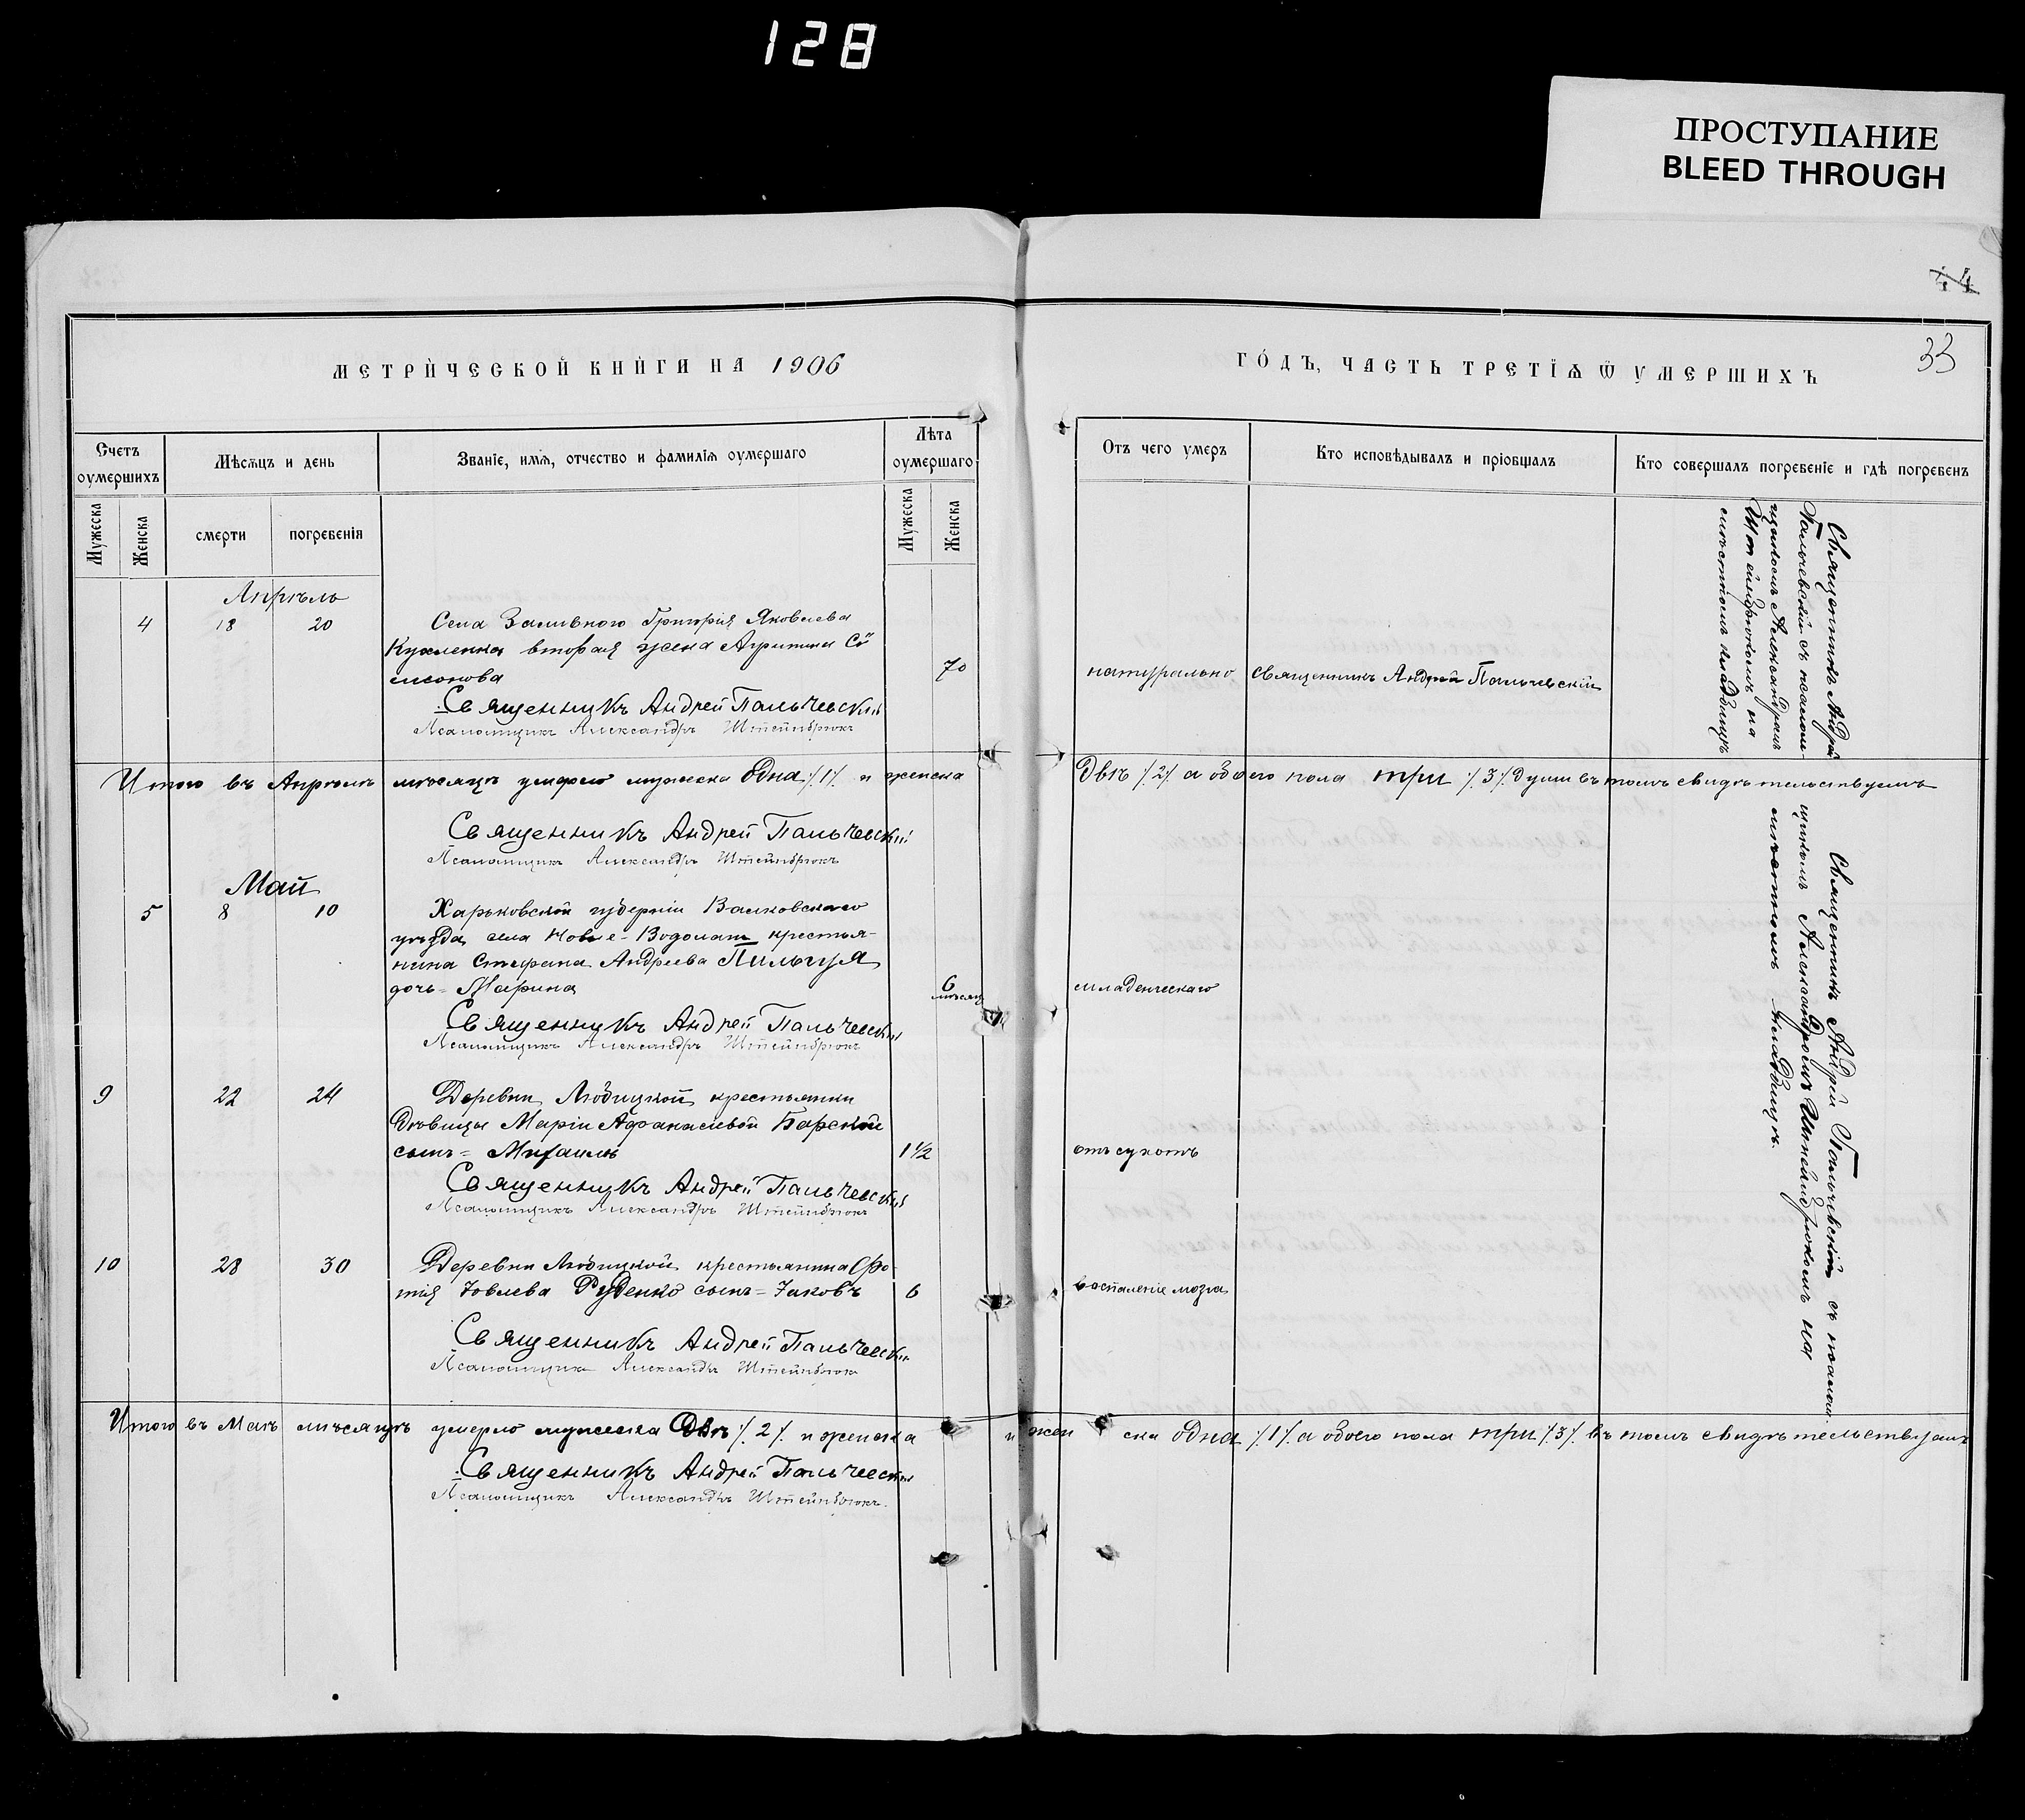 128
ПРОСТУПАНИЕ
BLEED THROUGH
44
33
МЕТРИЧЕСКОЙ КНИГИ НА 1906
Счетъ оумершихъ
Мѣсяцъ и день
Званіе, имя, отчество и фамилія оумершаго
Лѣта оумершаго
Мужеска
Женска
смерти
погребенія
Мужеска
Женска
Апрѣль
4 18 20
Села Заливного Григорія Яковлева
вторая жена Агрипина Си
мсонова
70
Священникъ Андрей Пальчевскій
Псаломщикъ Александръ Штейнбрюкъ
Итого въ Апрѣлѣ мѣсяцѣ умерло мужеска одна /1/. и женска
Священникъ Андрей Пальчевскій
Псаломщикъ Александръ Штейнбрюкъ
Май
5 8 10
Харьковской губерніи Валковскаго
уѣзда, села Новые-Водолаги крестья-
нина Стефана Андреева
дочь = Марина
6 мѣсяц
Священникъ Андрей Пальчевскій
Псаломщикъ Александръ Штейнбрюкъ
9 22 24
Деревни Любицкой крестьянки
дѣвицы Маріи Афанасіевой Барской
сынъ = Михаилъ
1 1/2
Священникъ Андрей Пальчевскій
Псаломщикъ Александръ Штейнбрюкъ
10 28 30
Деревни Любицкой крестьянина Фо-
тія Іовлева Руденко сынъ = Іаковъ
6
Священникъ Андрей Пальчевскій
Псаломщикъ Александръ Штейнбрюкъ
Итого въ Маѣ мѣсяцѣ умерло мужеска Двѣ /2/. и женска
Священникъ Андрей Пальчевскій
Псаломщикъ Александръ Штейнбрюкъ.
ГОДЪ, ЧАСТЬ ТРЕТІЯ Ѿ УМЕРШИХЪ
Отъ чего умеръ
Кто исповѣдывалъ и пріобщалъ
Кто совершалъ погребеніе и гдѣ погребенъ
натурально
Священникъ Андрей Пальчевскій
Священникъ Андрей
Пальчевскій съ псалом-
щикомъ Александромъ
Штейнбрюкомъ на
мѣстномъ кладбищѣ
Двѣ /2/. а обоего пола три /3/. души въ томъ свидѣтельствуемъ
младенческаго
отъ сухотъ
воспаленіе мозга
Священникъ Андрей Пальчевскій съ псалом-
щикомъ Александромъ Штейнбрюкомъ на
мѣстномъ кладбищѣ.
и жен ска одна /1/. а обоего пола три /3/. въ томъ свидѣтельствуемъ